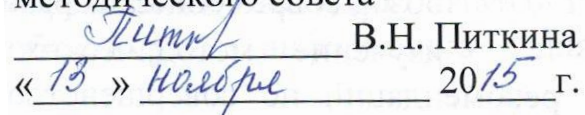 методического совета
Питк В.Н. Питкина
«13» ноября 2015 г.